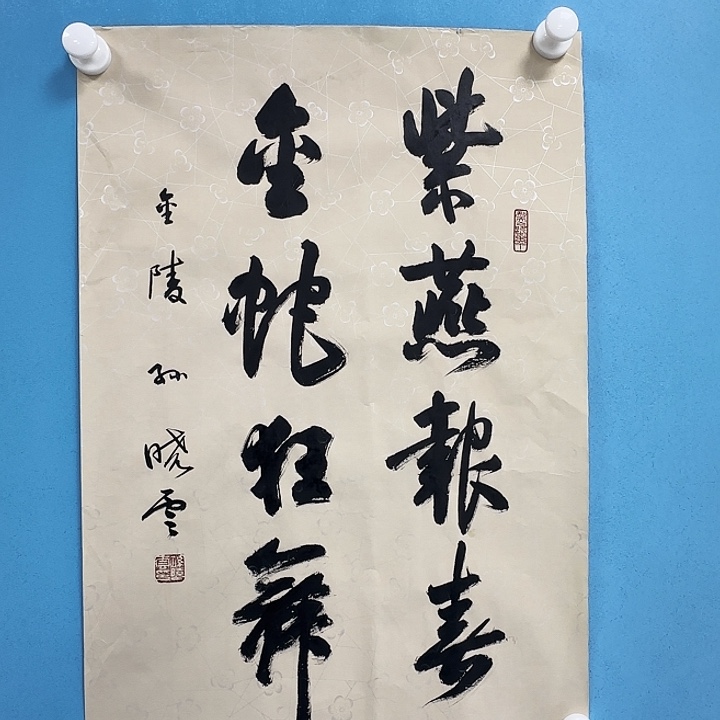 紫燕報春
金蛇狂舞
金陵孙晓雲